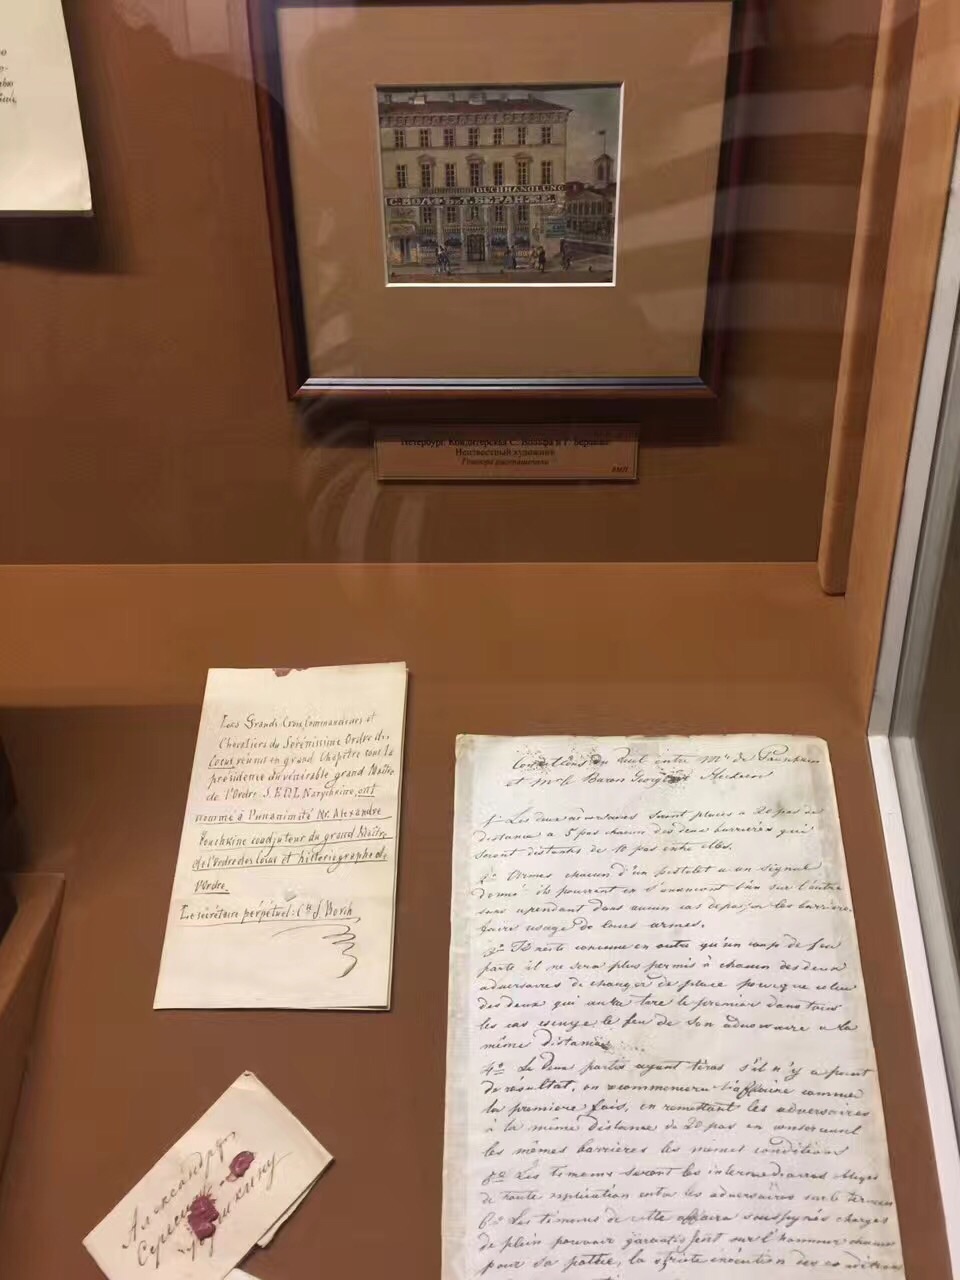 BUCHHANDLUNG
С. ВОЛЬФЪ и Т. БЕРАНЖЕ
Петербург. Кондитерская С. Вольфа и Т. Беранже
Неизвестный художник
ВМП
Les Grands Croix, Commandeurs et
Chevaliers du Sérénissime Ordre des
Cocus, réunis en grand Chapitre sous la
présidence du vénérable grand Maître
de l'Ordre, S. E. D. L. Narychkine, ont
nommé à l'unanimité Mr. Alexandre
Pouchkine coadjuteur du grand Maître
de l'Ordre des Cocus et historiographe de
l'Ordre.
Le sécrétaire perpétuel: Cte J. Borch
Александру
Сергеичу
Conditions du duel entre Mr de
et Mr le Baron Georges Heckern
1° Les deux adversaires seront placés à 20 pas de
distance a 5 pas chacun des deux barrières qui
seront distantes de 10 pas entre elles.
2° Armés chacun d'un pistolet a un signal
donné ils pourront en s'avancant l'un sur l'autre
sans cependant dans aucun cas depasser les barrières
faire usage de leurs armes.
3° Il reste convenu en outre qu'un coup de feu
parti il ne sera plus permis à chacun des deux
adversaires de changer de place pour que celui
des deux qui aura tiré le premier dans tous
les cas essuye le feu de son adversaire a la
même distance
4° Les deux parties ayant tirés s'il n'y a point
de résultat, on recommencera l'affaire comme
la première fois, en remettant les adversaires
à la même distance de 20 pas en conservant
les mêmes barrières les memes conditions
5° Les temoins seront les intermediaires obligés
de toute explication entre les adversaires sur le terrein
6° Les témoins de cette affaire soussignés chargés
de plein pouvoir garantissent sur l'honneur chacun
pour sa partie, la stricte exécution des conditions